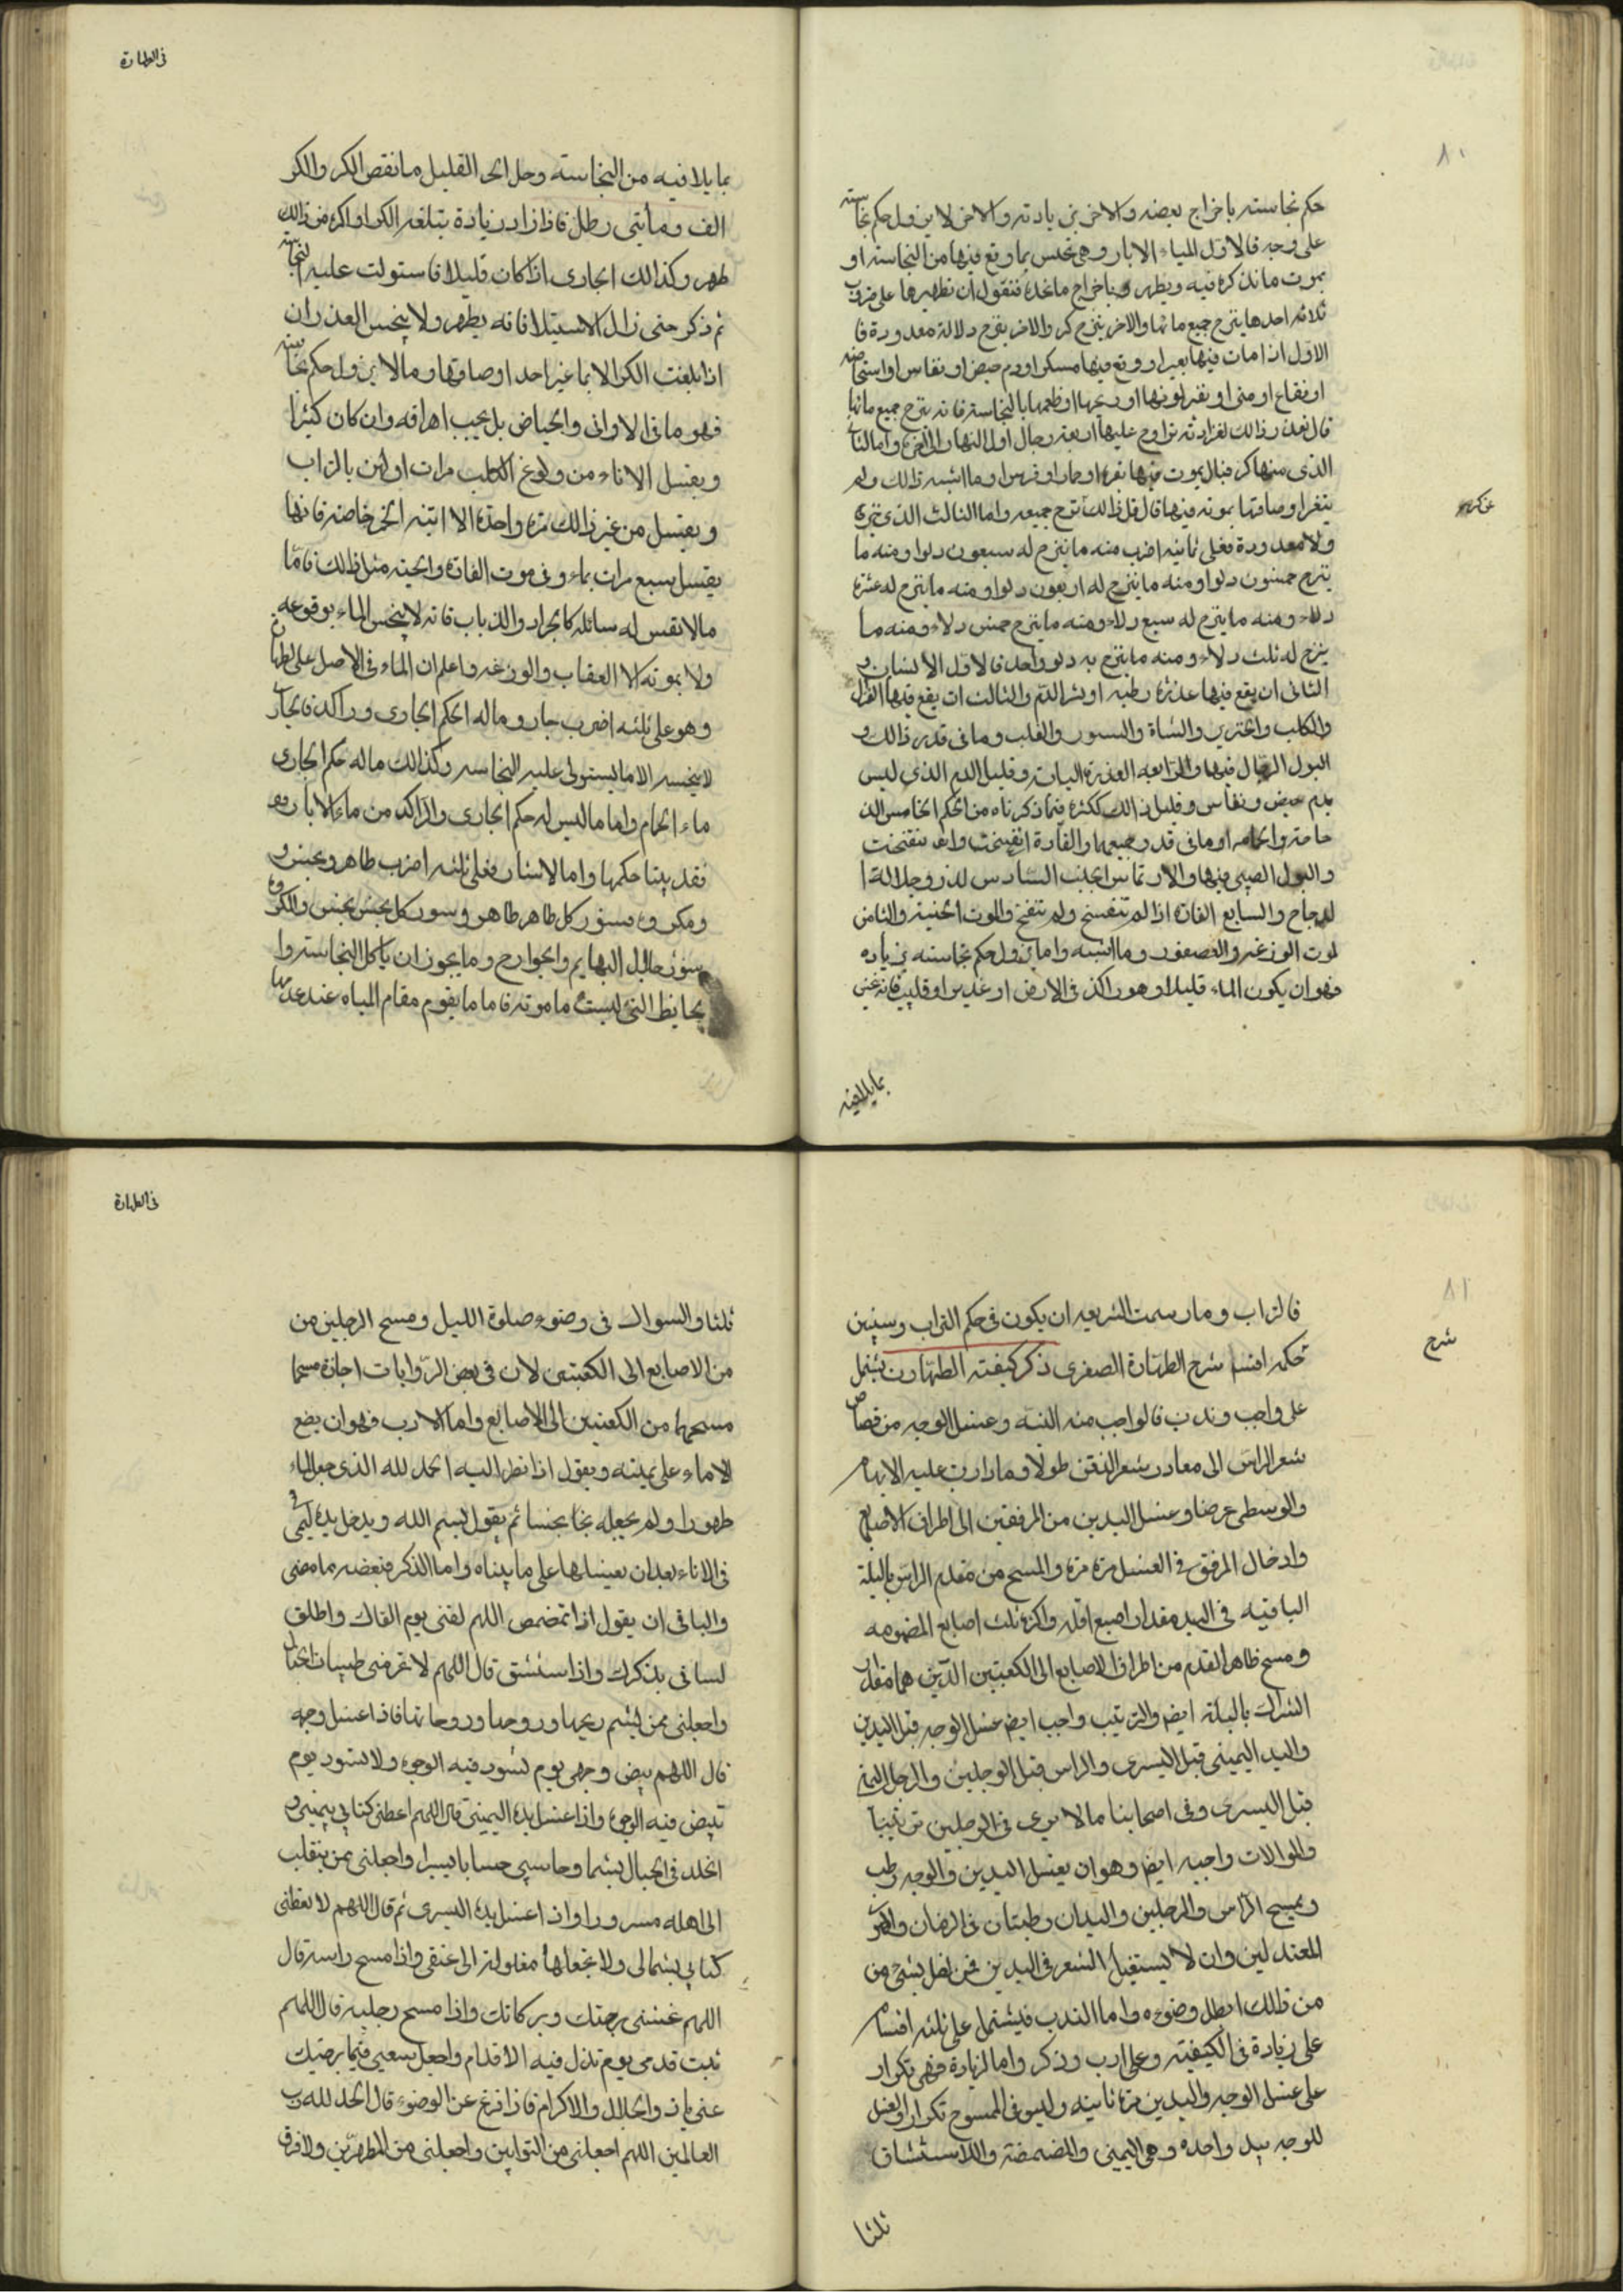 ٨٠
حكم نجاسته باخراج بعضه والاخر بزيادته والاخر لا يزول حكم نجاسته
على وجه فالاول المياء الابار وهى تنجس بما وقع فيها من النجاسته او
بموت ما نذكره فيه ويطهر باخراج ما نحده فنقول ان تطهيرها على ضروب
ثلاثه احدها ينزح جميع مائها والاخر ينزح كر والاخر ينزح دلالة معدودة فا
الاول اذا مات فيها بعير او وقع فيها مسكر او دم حيض او نفاس او استحاضه
او فقاع او منى او تغير لونها او ريحها او طعمها بالنجاسته فانه ينزح جميع مائها
فان تعذر ذالك لغزارته تراوح عليها اربعه رجال اول النهار الى اخره واما الثانى
الذى منها كر فبال بموت فيها بقره او حمار او فرس او ما اشبه ذالك ولم
يتغير اوصافها بموته فيها قال قل ذالك نزح جميعه واما الثالث الذى ينزح
ولا معدودة فعلى ثمانيه اضرب منه ما ينزح له سبعون دلوا ومنه ما
ينزح خمسون دلوا ومنه ما ينزح له اربعون دلوا ومنه ما ينزح له عشرة
دلاء ومنه ما ينزح له سبع دلاء ومنه ما ينزح خمس دلاء ومنه ما
ينزح له ثلث دلاء ومنه ما ينزح به دلو واحد فالاول الانسان و
الثانى ان يقع فيها عذرة رطبه او بئر الدم والثالث ان يقع فيها الغزال
والكلب والخنزير والشاة والسنور والثعلب وما فى قدر ذالك و
البول الرجال فيها والرابعه العذرة اليابسة وقليل الدم الذى ليس
بدم حيض ونفاس وقليل ذالك ككثره فيما ذكرناه من الحكم الخامس الد
جاجة والحمامه او ما فى قدر جميعها والفارة اذا تفسخت وانتفخت
والبول الصبى فيها والارتماس الجنب السادس لذرق جلالة ا
لدجاج والسابع الفارة اذا لم تتفسخ ولم تنتفخ والموت الحية والثامن
لموت الوزغه والعصفور وما اشبه واما يزول حكم نجاسته بزياده
فهو ان يكون الماء قليلا وهو راكد فى الارض او غدير او قليب فانه
بما يلاقيه
فى الطهارة
بما يلاقيه من النجاسته وحد الحد القليل ما نقص الكر والكر
الف ومأتى رطل فاذا زاد زيادة يتبلغه الكر او اكثر من ذالك
طهر وكذالك الجارى اذا كان قليلا فاستولت عليه النجاسته
ثم ذكر حتى زال الاستيلا فانه يطهر ولا ينجس الغدران
اذا بلغت الكر الا بما غير احد اوصافها وما لا يزول حكم نجاسته
فهو ما فى الاوانى والحياض بل يجب اهراقه وان كان كثيرا
ويغسل الاناء من ولوغ الكلب مرات اولهن بالتراب
ويغسل من غير ذالك مرة واحدة الا انيه الخمر خاصه فانها
يغسل سبع مرات بماء وفى موت الفارة والحيه مثل ذالك فاما
مالا نفس له سائله كالجراد والذباب فانه لا ينجس الماء بوقوعه
ولا بموته الا العقاب والوزغه واعلم ان الماء فى الاصل على الطهارة
وهو على ثلثه اضرب جار وماله الحكم الجارى وراكد فالجارى
لا ينجسه الا ما يستولى عليه النجاسه وكذالك ماله حكم الجارى
ماء الحمام واما ما ليس له حكم الجارى والراكد من ماء الابار وهو
فقد بينا حكمها واما الاسئار فعلى ثلثه اضرب طاهر ونجس و
ومكروه فسؤر كل طاهر طاهر وسور كل نجس نجس والمكروه
سؤر جلال البهايم والجوارح وما يجوز ان ياكل النجاسته وا
لحايظ التى ليست مامونه فاما ما يقوم مقام المياه عند عدمها
٨١
شرح
فالتراب وما رسمت الشريعه ان يكون فى حكم التراب وسنبين
حكمه افسا شرح الطهارة الصغرى ذكر كيفته الطهارة يشتمل
على واجب وندب فالواجب منه النية وغسل الوجه من قصاص
شعر الراس الى معادر شعر الذقن طولا وما دارت عليه الابهام
والوسطى عرضا وغسل اليدين من المرفقين الى اطراف الاصابع
وادخال المرفق فى الغسل مرة مرة والمسح من مقدم الراس بالبلة
الباقيه فى اليد مقدار اصبع اقله واكثره ثلث اصابع المضمومه
ومسح ظاهر القدم من اطراف الاصابع الى الكعبتين الذين هما مقدار
الشراك بالبلة ايضا والترتيب واجب ايضا غسل الوجه قبل اليدين
واليد اليمينى قبل اليسرى والراس قبل الوجلين والرجل اليمنى
قبل اليسرى وفى اصحابنا ما لا يرى فى الرجلين ترتيبا
والموالات واجبه ايضا وهو ان يغسل اليدين والوجه رطب
ويمسح الراس والرجلين واليدان رطبتان فى الزمان والحر
المعتدلين وان لا يستقبل الشعر فى اليدين فمن اخل بشئ من
من ذالك ابطل وضوءه واما الندب فيشتمل على ثلثه اقسام
على زيادة فى الكيفيته وعلى ادب وذكر واما الزيادة فهى تكرار
على غسل الوجه واليدين مرة ثانيه وليس فى الممسوح تكرار والغسل
للوجه بيد واحده وهى اليمينى والمضمضة والاستنشاق
ثلثا
فى الطهارة
ثلثا والسواك فى وضوء صلوة الليل ومسح الرجلين من
من الاصابع الى الكعبتين لان فى بعض الروايات اجازة مسحا
مسحهما من الكعبتين الى الاصابع واما الادب فهو ان يضع
الاماء على يمينه ويقول اذا نظر اليه الحمد لله الذى جعل الماء
طهورا ولم يجعله نجا نجسا ثم يقول بسم الله ويدخل يده اليمنى
فى الاناء بعد ان يغسلها على ما بيناه واما الذكر فبعضه ما مضى
والباقى ان يقول اذا تمضمض اللهم لقنى يوم القاك واطلق
لسانى بذكرك واذا ستنشق قال اللهم لا تحرمنى طيبات الجنان
واجعلنى ممن يشم ريحها وروحها وروحانها فاذا غسل وجهه
قال اللهم بيض وجهى يوم تسود فيه الوجوه ولا تسود يوم
تبيض فيه الوجوه واذا غسل يده اليمينى قال اللهم اعطنى كتابى بيمينى و
الخلد فى الجبال بشما وحاسبى حسابا يسيرا واجعلنى ممن ينقلب
الى اهله مسرورا واذا غسل يده اليسرى ثم قال اللهم لا تعطنى
كتابى بشمالى ولا تجعلها مغلولة الى عنقى واذا مسح راسه قال
اللهم غشنى برحمتك وبركاتك واذا مسح رجليه قال اللهم
ثبت قدمى يوم تذل فيه الاقدام واجعل سعيى فيما يرضيك
عنى يا ذوالجلال والاكرام فاذا فرغ عن الوضوء قال الحمد لله رب
العالمين اللهم اجعلنى من التوابين واجعلنى من المطهرين ولا فرق